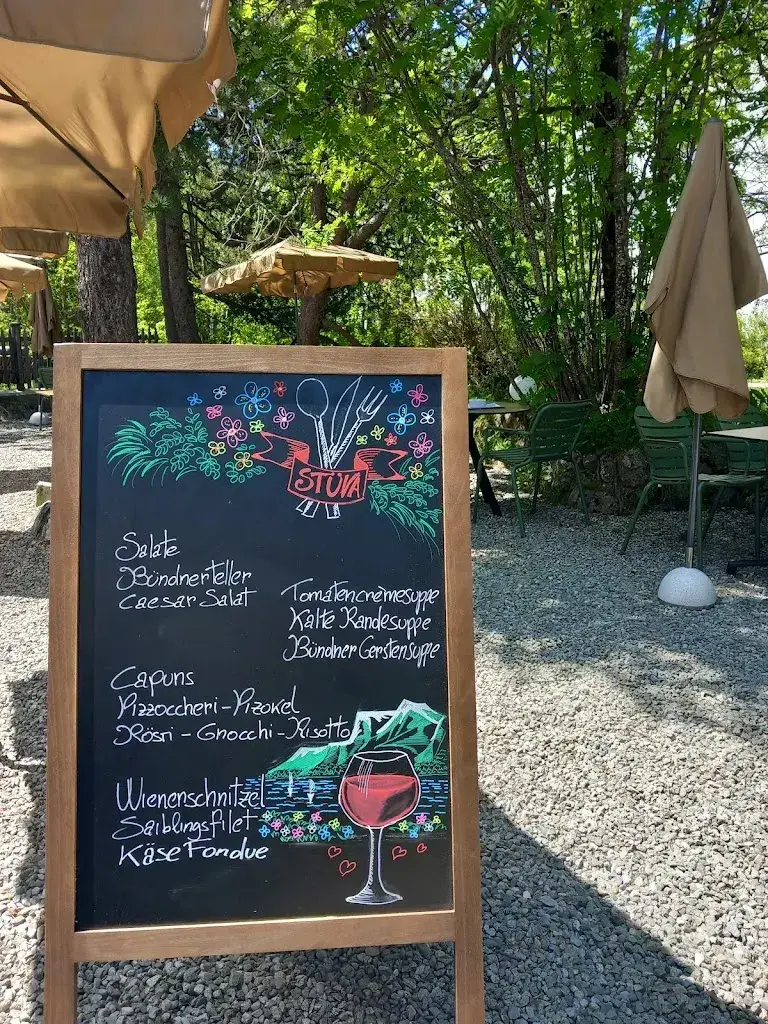 STÜVA
Salate
Bündnerteller
Caesar Salat
Tomatencrèmesuppe
Kalte Randesuppe
Bündner Gerstensuppe
Capuns
Pizzoccheri - Pizokel
Rösti - Gnocchi - Risotto
Wienerschnitzel
Saiblingsfilet
Käse Fondue